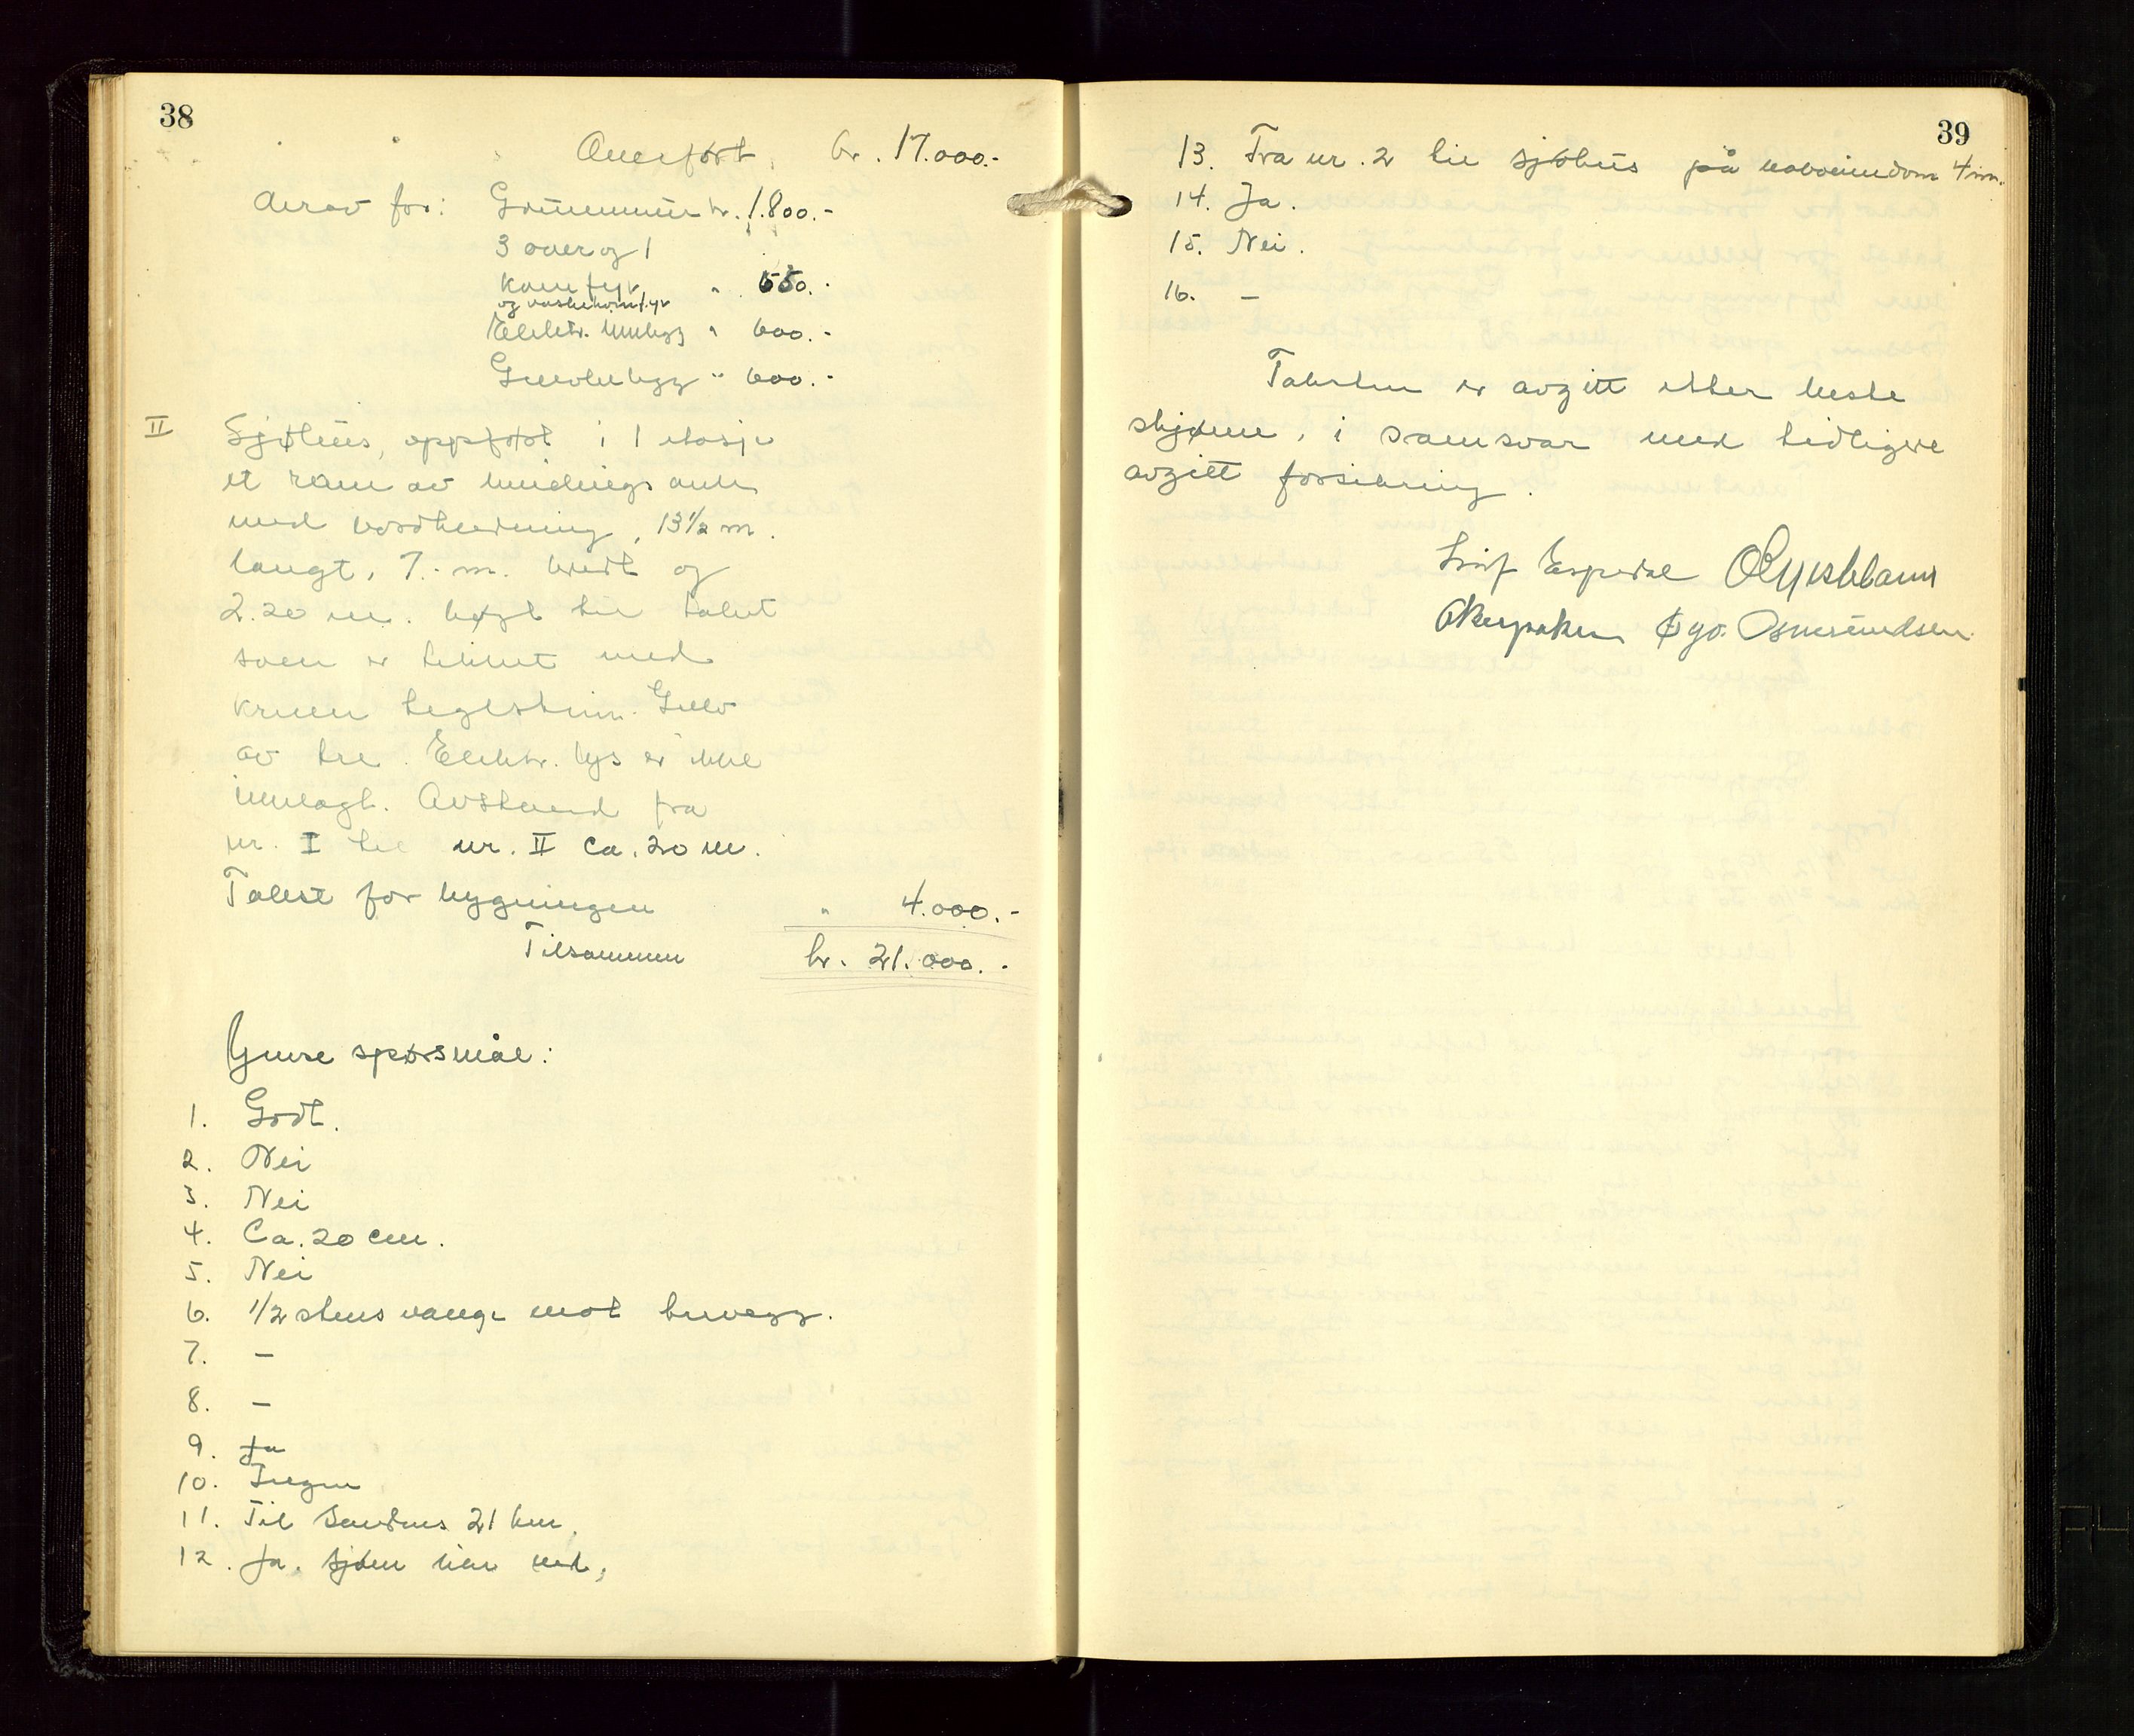 38
Overført kr. 17.000.-
Derav for: Grunnmur kr. 1.800.-
3 ovner og 1
komfyr " 550.-
og vaskekomfyr
Elektr. innlegg " 600.-
Gulvbelegg " 600.-
II Sjøhus, oppført i 1 etasje
et rom av bindingsverk
med bordkledning, 13½ m.
langt, 7.- m. bredt og
2.20 m. høgt til taket
som er tekket med
krum teglstein. Gulv
av tre. Elektr. lys er ikke
innlagt. Avstand fra
nr. I til nr. II Ca. 20 m.
Takst for bygningen " 4.000.-
Tilsammen kr. 21.000.-
Ymse spørsmål:
1. Godt.
2. Nei
3. Nei
4. Ca. 20 cm.
5. Nei
6. 1/2 stens vange mot trevegg.
7. -
8. -
9. Ja
10. Ingen
11. Til Sandnes 21 km.
12. Ja. Sjøen like ved.
39
13. Fra nr. 2 til sjøhus på naboeiendom 4 m.
14. Ja.
15. Nei.
16. -
Taksten er avgitt etter beste
skjønn, i samsvar med tidligere
avgitt forsikring.
Leif Espedal
Øyv. Osmundsen